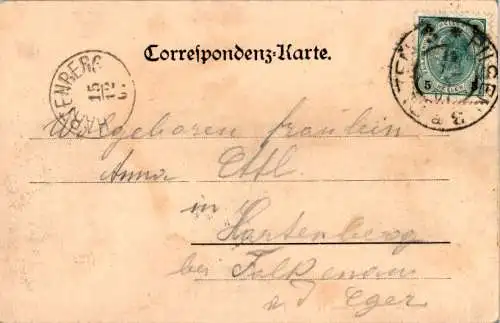 Correspondenz-Karte.
HARTENBERG
15
12
PILSEN
5 5
Wolgeboren Fräulein
Anna Ettl
in
Hartenberg
bei Falkenau
a d Eger